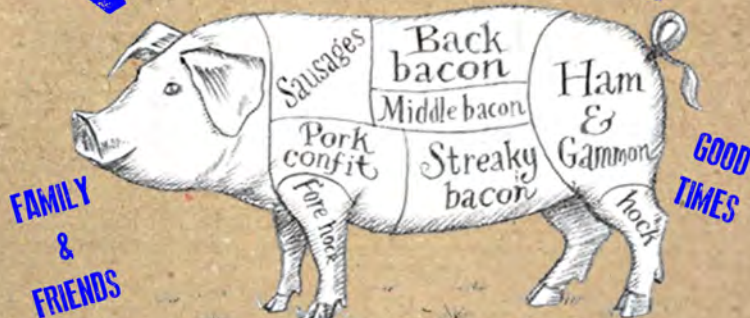 Sausages
Back
bacon
Middle bacon
Ham
&
Gammon
Pork
confit
Streaky
bacon
Fore hock
hock
FAMILY
&
FRIENDS
GOOD
TIMES